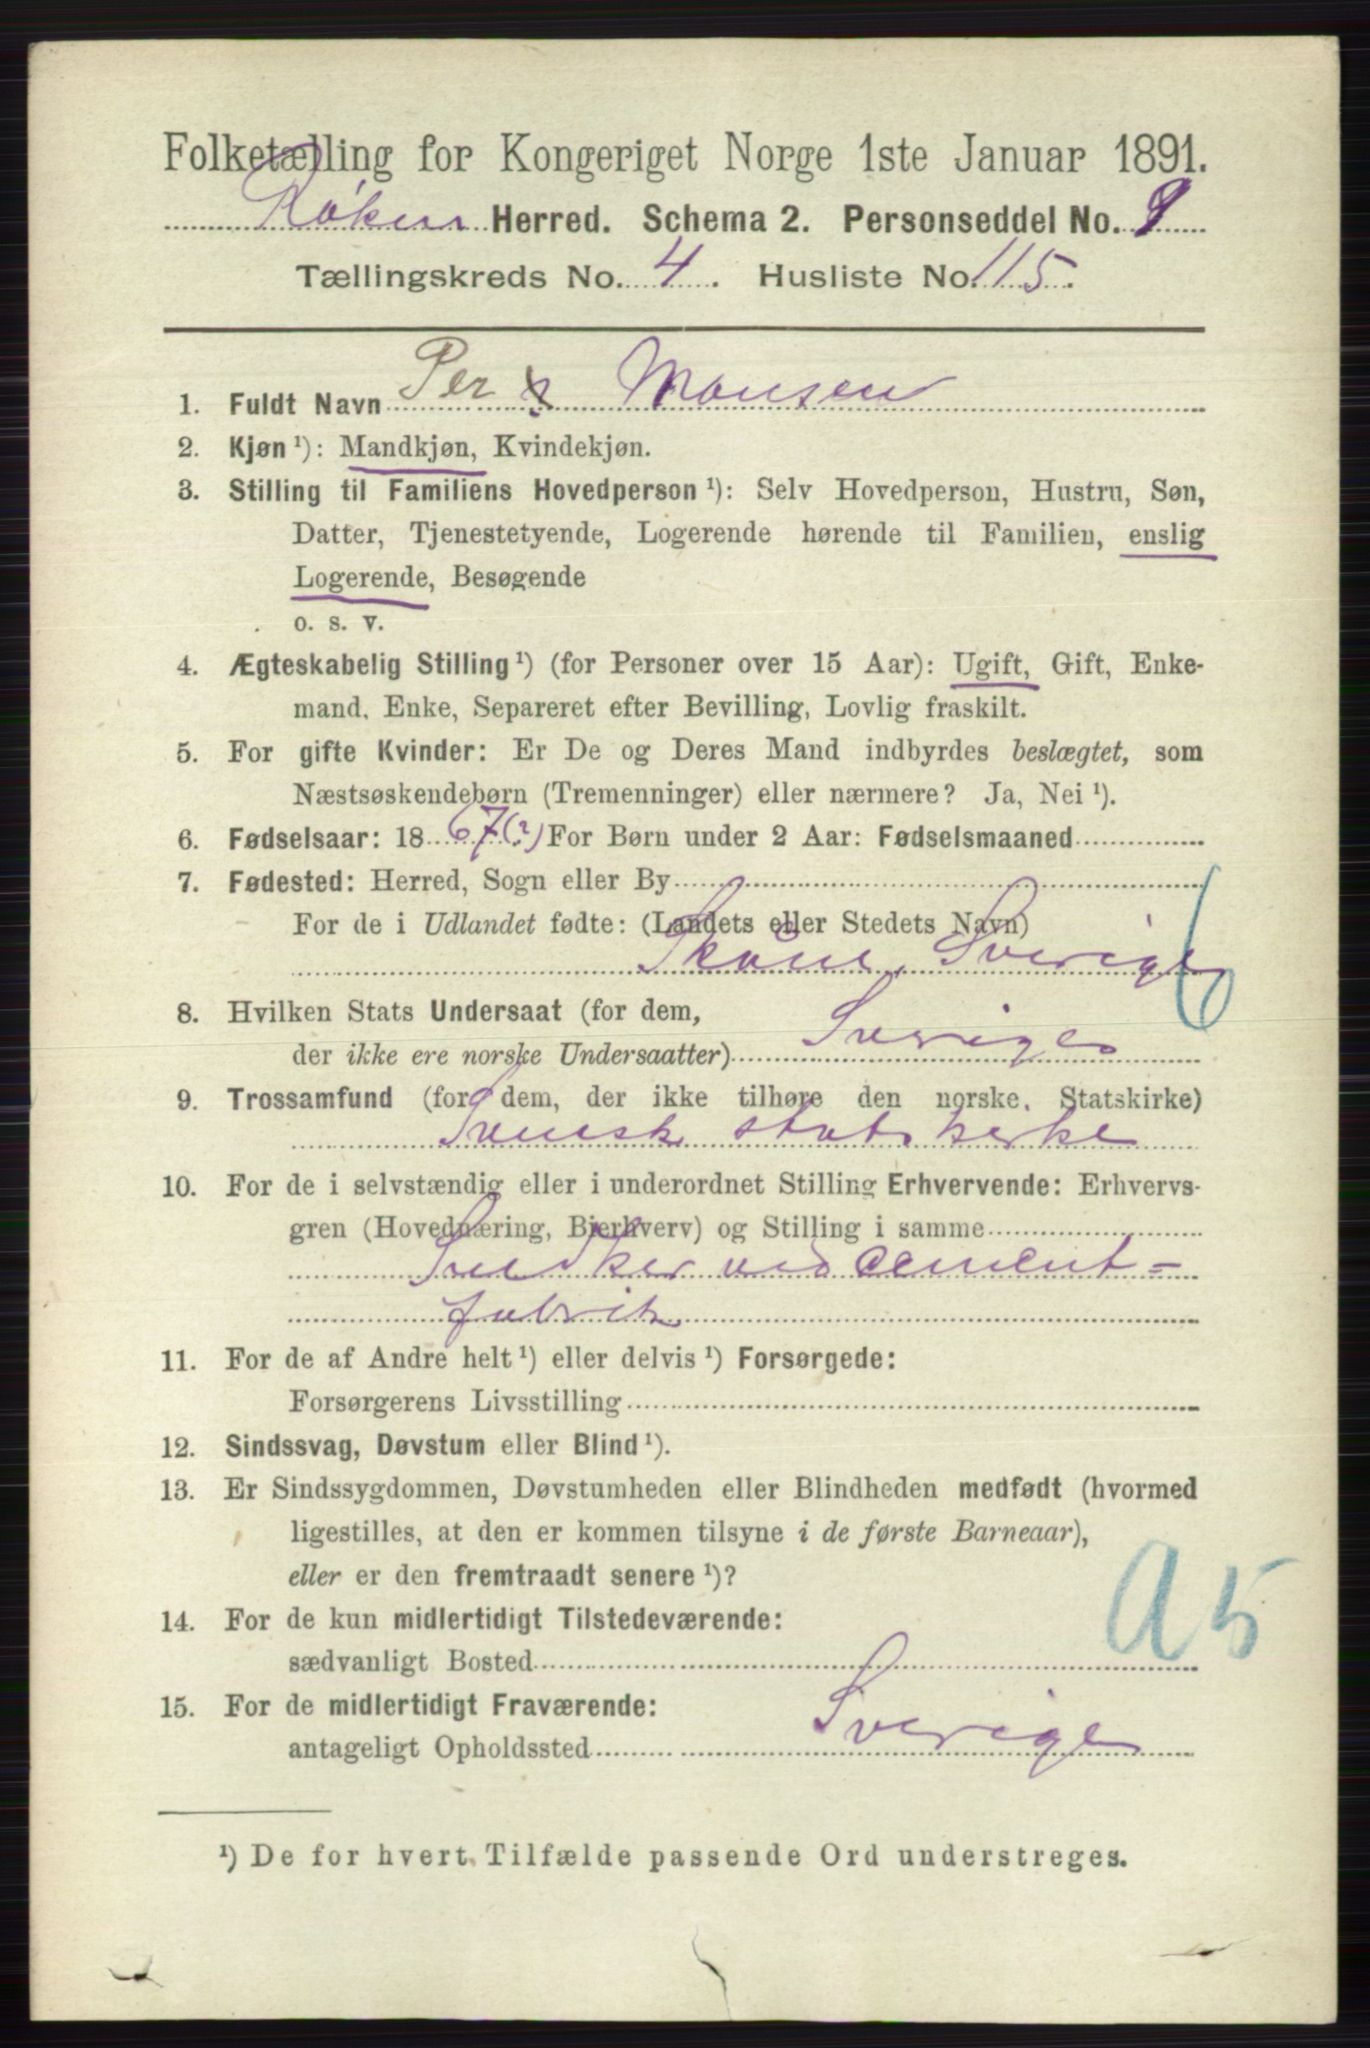 Folketælling for Kongeriget Norge 1ste Januar 1891.
Røken Herred. Schema 2. Personseddel No. 9
Tællingskreds No. 4. Husliste No. 115.
1. Fuldt Navn Per Monsen
2. Kjøn ¹): Mandkjøn, Kvindekjøn.
3. Stilling til Familiens Hovedperson ¹): Selv Hovedperson, Hustru, Søn,
Datter, Tjenestetyende, Logerende hørende til Familien, enslig
Logerende, Besøgende
o. s. v.
4. Ægteskabelig Stilling ¹) (for Personer over 15 Aar): Ugift, Gift, Enke-
mand, Enke, Separeret efter Bevilling, Lovlig fraskilt.
5. For gifte Kvinder: Er De og Deres Mand indbyrdes beslægtet, som
Næstsøskendebørn (Tremenninger) eller nærmere? Ja, Nei ¹).
6. Fødselsaar: 1867(?) For Børn under 2 Aar: Fødselsmaaned
7. Fødested: Herred, Sogn eller By
For de i Udlandet fødte: (Landets eller Stedets Navn)
Skåne, Sverige
8. Hvilken Stats Undersaat (for dem,
der ikke ere norske Undersaatter) Sverige
9. Trossamfund (for dem, der ikke tilhøre den norske. Statskirke)
Svensk statskirke
10. For de i selvstændig eller i underordnet Stilling Erhvervende: Erhvervs-
gren (Hovednæring, Bierhverv) og Stilling i samme
Snedker ved cement-
fabrik
11. For de af Andre helt ¹) eller delvis ¹) Forsørgede:
Forsørgerens Livsstilling
12. Sindssvag, Døvstum eller Blind ¹).
13. Er Sindssygdommen, Døvstumheden eller Blindheden medfødt (hvormed
ligestilles, at den er kommen tilsyne i de første Barneaar),
eller er den fremtraadt senere ¹)?
A5
14. For de kun midlertidigt Tilstedeværende:
sædvanligt Bosted
15. For de midlertidigt Fraværende:
antageligt Opholdssted Sverige
¹) De for hvert Tilfælde passende Ord understreges.